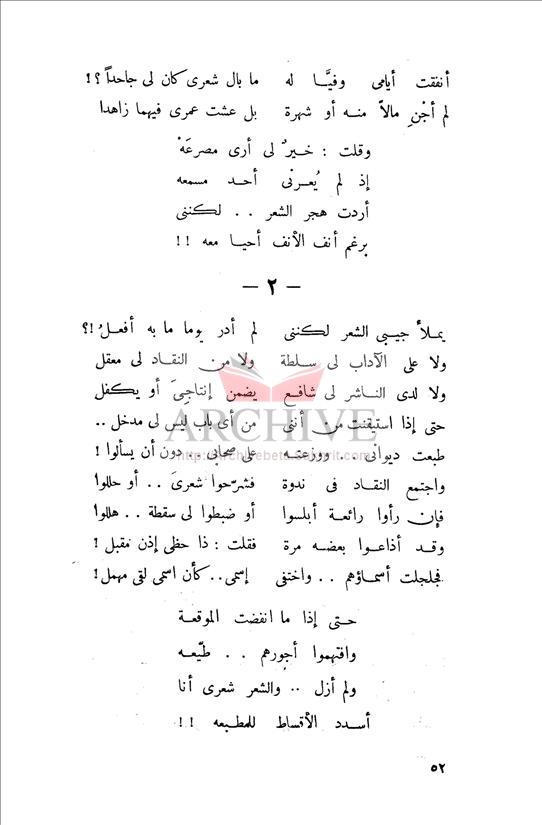 أنفقت أيامى وفيَّا له ما بال شعرى كان لى جاحداً ؟!
لم أجْنِ مالاً منه أو شهرة بل عشت عمرى فيهما زاهدا
وقلت : خيرٌ لى أرى مصرعَهْ
إذ لم يُعرنى أحد مسمعه
أردت هجر الشعر . . لكننى
برغم أنف الأنف أحيا معه !!
— ٢ —
يملأ جيبى الشعر لكننى لم أدر يوما ما به أفعلُ !؟
ولا على الآداب لى سلطة ولا من النقاد لى معقل
ولا لدى الناشر لى شافع يضمن إنتاجىَ أو يكفل
حتى إذا استيقنت من أننى من أى باب ليس لى مدخل ..
طبعت ديوانى . . ووزعته على صحابى . . دون أن يسألوا !
واجتمع النقاد فى ندوة فشرّحوا شعرىَ . . أو حللوا
فإن رأوا رائعة أبلسوا أو ضبطوا لى سقطة . . هللوا
وقد أذاعوا بعضه مرة فقلت : ذا حظى إذن مقبل !
فجلجلت أسماؤهم . . واختفى إسمى . . كأن اسمى لقى مهمل !
حتى إذا ما انفضت الموقعة
واقتهموا أجورهم . . طيّعه
ولم أزل .. والشعر شعرى أنا
أسدد الأقساط للمطبعه !!
٥٢
ARCHIVE